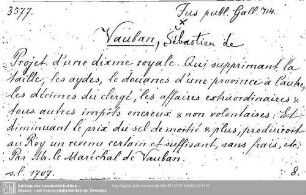 3577.
Jus publ. Gall. 714.
Vauban, Sébastien de
Projet d'une dixme royale. Qui supprimant la
taille, les aydes, le douanes d'une province à l'autre,
les décimes du clergé, les affaires extraordinaires &
tous autres impôts onereux & non volontaires: Et
diminuant le prix du sel de moitié & plus, produiroit
au Roy un revenu certain et suffisant, sans frais, etc.
Par M. le Maréchal de Vauban.
s.l. 1707. 8.